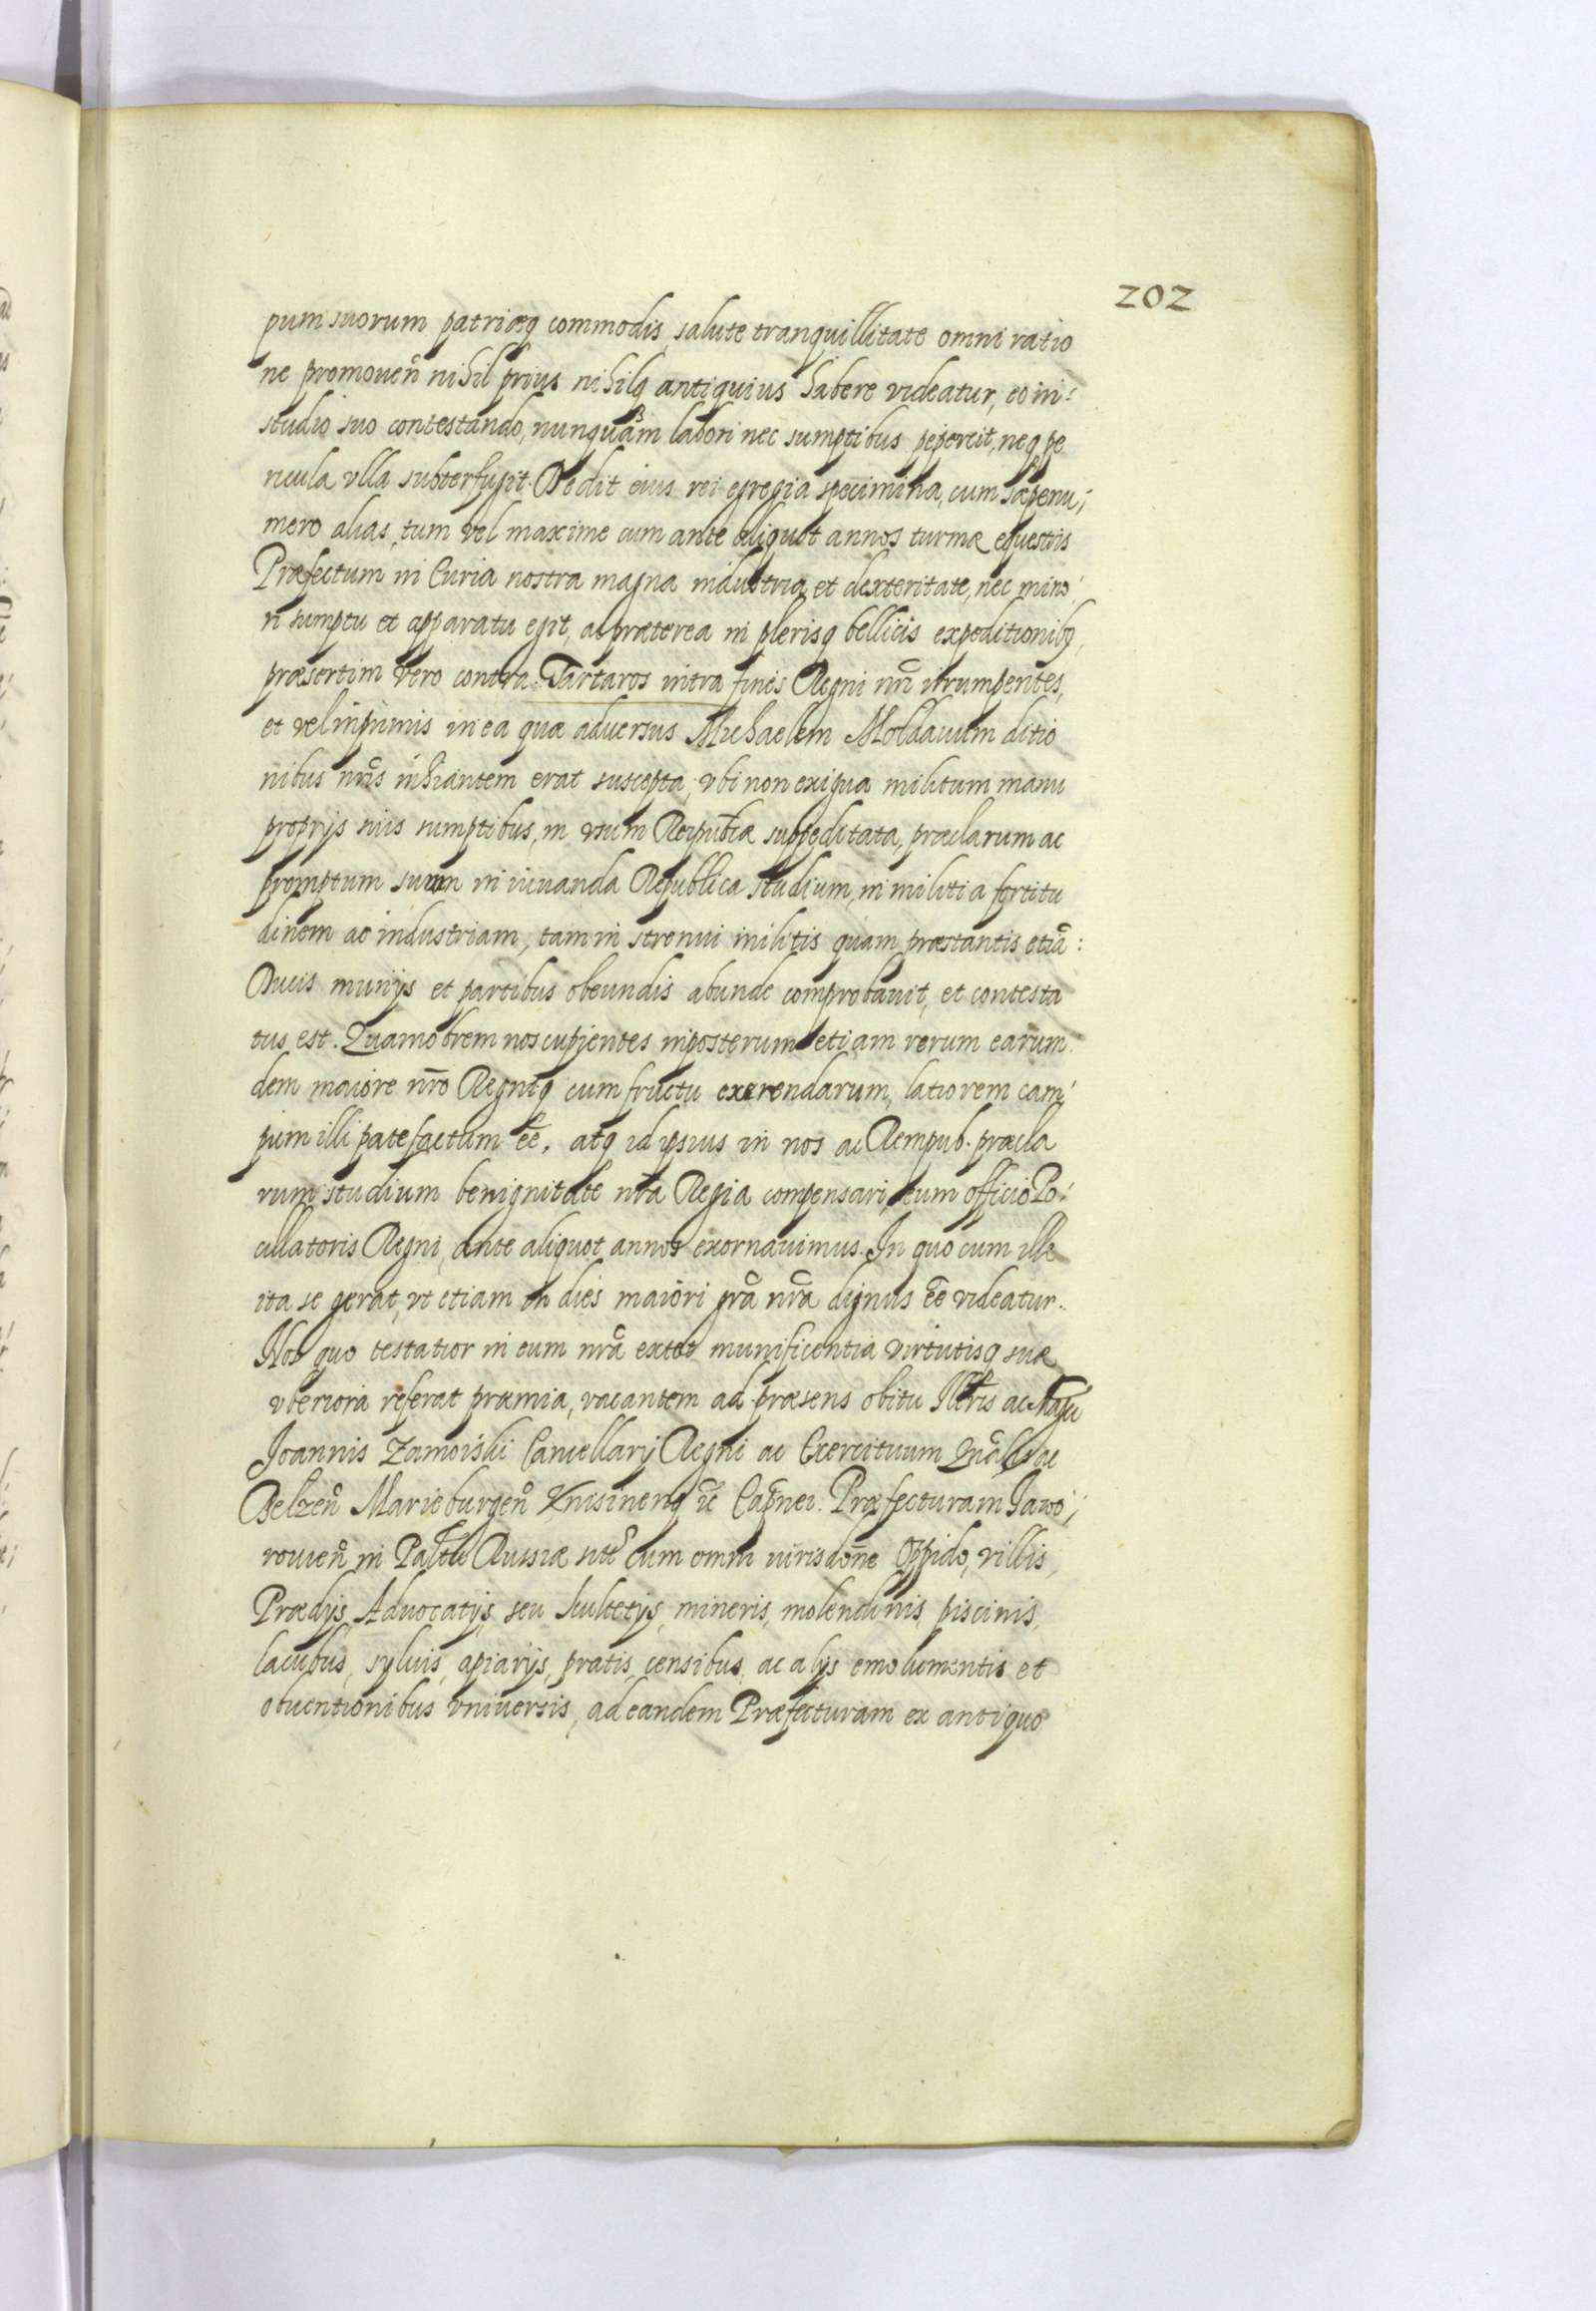 202
pum suorum patriæq commodis, salute tranquillitate omni ratio
ne promoueñ nihil prius nihilq antiquius habere videatur, eo in:
studio suo contestando, nunquam labori nec sumptibus pepercit, neq pe
ricula vlla subterfugit. Dedit eius rei egregia specimina, cum sæpenu;
mero alias, tum vel maxime cum ante aliquot annos turmæ equestris
Præfectum in Curia nostra magna industria et dexteritate, nec mino:
ri sumptu et apparatu egit, ac præterea in plerisq bellicis expeditionibq,
præsertim vero contra Tartaros intra fines Regni nri irrumpentes,
et vel inprimis in ea quæ aduersus Michaelem Moldauum ditio
nibus nris inhiantem erat suscepta; vbi non exigua militum manu
proprijs suis sumptibus, in vsum Reipublcæ suppeditata, præclarum ac
promptum suum in iuuanda Republica studium, in militia fortitu
dinem ac industriam, tam in strenui militis quam præstantis etiã:
Ducis munijs et partibus obeundis abunde comprobauit, et contesta
tus est. Quamobrem nos cupientes inposterum etiam verum earum
dem maiore nro Regniq cum fructu exerendarum, latiorem cam:
pum illi patefactum ee, atq id ipsius in nos ac Rempub. præcla
rum studium benignitate nra Regia compensari, eum officio Po:
cillatoris Regni, ante aliquot annos exornauimus. In quo cum ille
ita se gerat, vt etiam in dies maiori gra nra dignus ee videatur.
Nos quo testatior in eum nra extet munificentia virtutisq suæ
vberiora referat præmia, vacantem ad præsens obitu Illtris ac Magci
Joannis Zamoiski Cancellarij Regni ac Exercituum Gnalis ac
Belzeñ Marieburgeñ Knisineng &c Capnei. Præfecturam Jawo;
rouieñ in Paltu Russiæ sitã cum omni iurisdone Oppido, villis,
Prædijs, Aduocatijs, seu Scultetijs, mineris, molendinis, piscinis,
lacubus, syluis, apiarijs, pratis, censibus, ac alijs emolumentis et
obuentionibus vniuersis, ad eandem Præfecturam ex antiquo